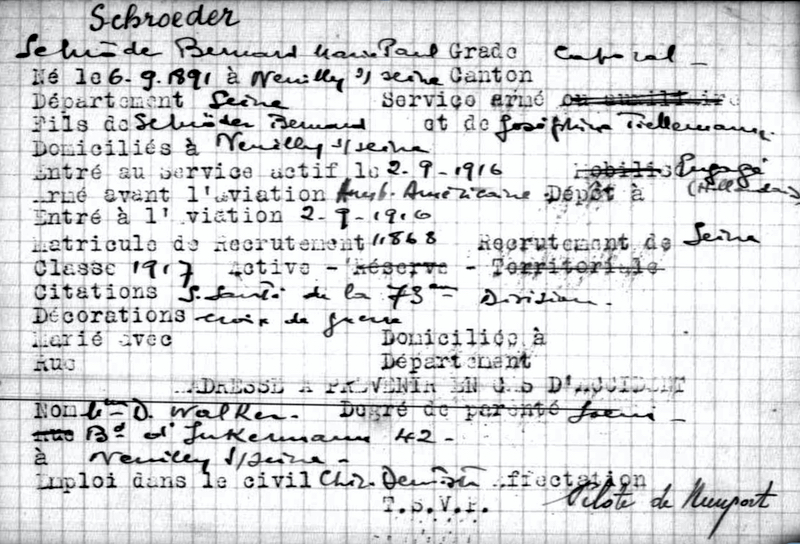 Schroeder
Schröder Bernard Marie Paul Grade Caporal -
Né le 6-9-1891 à Neuilly s/ Seine Canton
Département Seine Service armé ou auxiliaire
Fils de Schröder Bernard et de Joséphine Tiellemans.
Domiciliés à Neuilly s/Seine
Entré au service actif le 2-9-1916 Mobilis Engagé
Armé avant l'aviation Amb. Américaine Dépôt à (Hollandais)
Entré à l'Aviation 2-9-1916
Matricule de Recrutement 11868 Recrutement de Seine
Classe 1917 Active - Réserve - Territoriale
Citations S. Santé de la 73me Division.
Décorations croix de guerre
Marié avec Domiciliée à
Rue Département
ADRESSE A PREVENIR EN CAS D'ACCIDENT
Nom Mme D. Walker. Degré de parenté Soeur -
Rue Bd d'Inkermann 42 -
à Neuilly s/Seine -
Emploi dans le civil Chir. Dentiste Affectation
T.S.V.P. Pilote de Nieuport